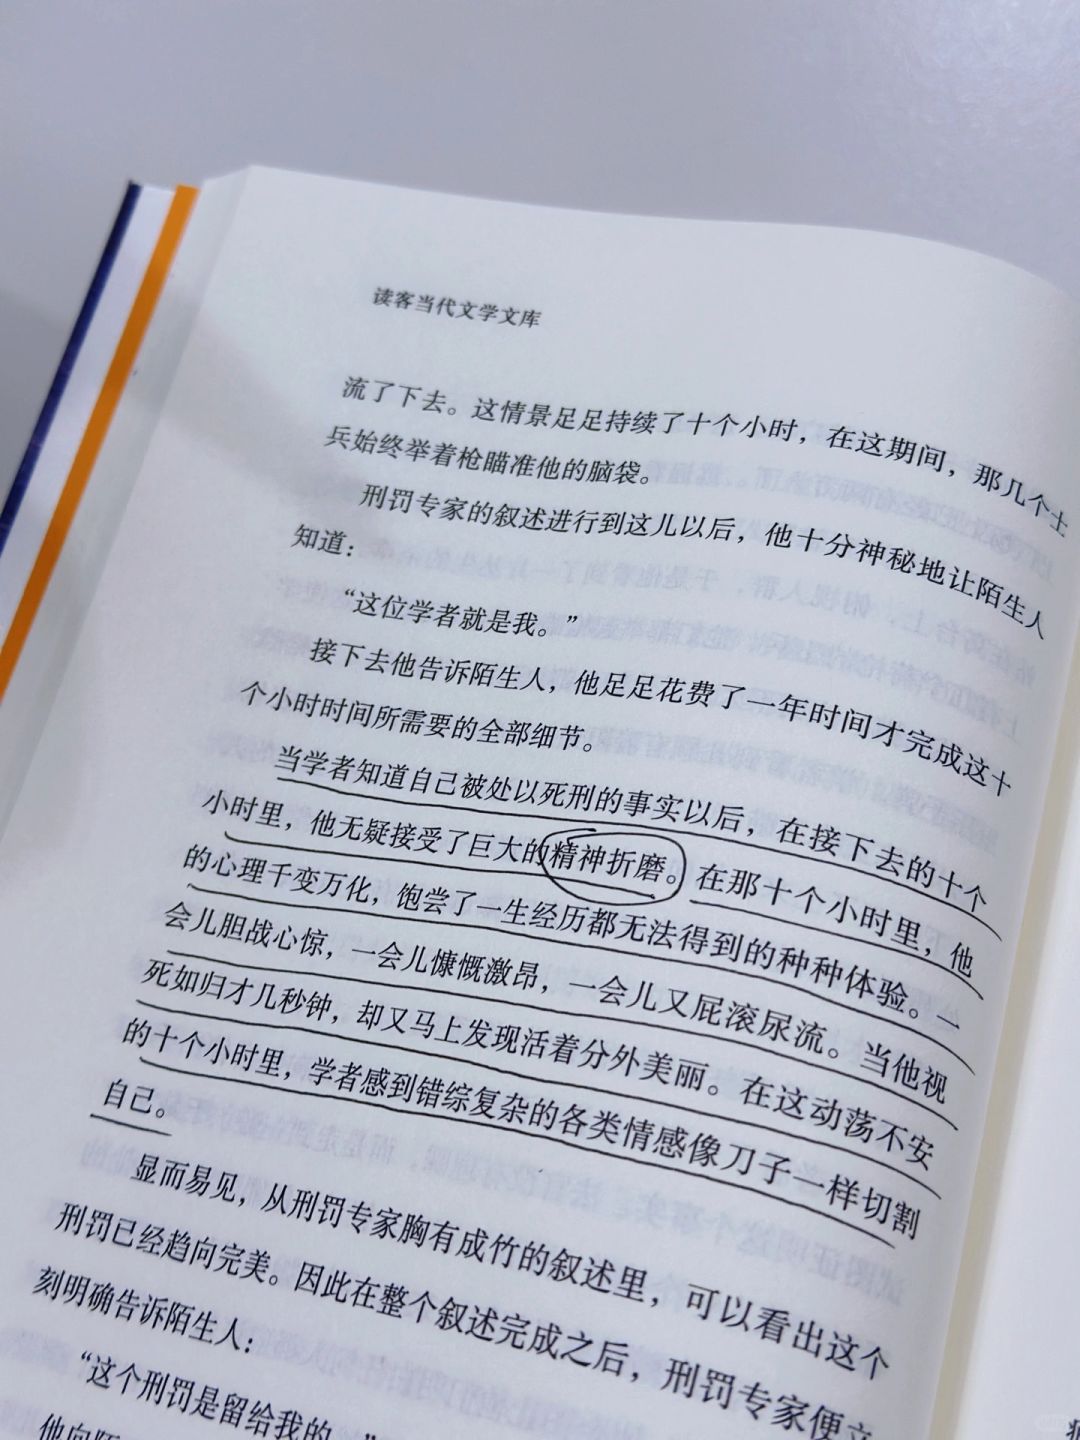 读客当代文学文库
流了下去。这情景足足持续了十个小时，在这期间，那几个士
兵始终举着枪瞄准他的脑袋。
刑罚专家的叙述进行到这儿以后，他十分神秘地让陌生人
知道：
“这位学者就是我。”
接下去他告诉陌生人，他足足花费了一年时间才完成这十
个小时时间所需要的全部细节。
当学者知道自己被处以死刑的事实以后，在接下去的十个
小时里，他无疑接受了巨大的精神折磨。在那十个小时里，他
的心理千变万化，饱尝了一生经历都无法得到的种种体验。一
会儿胆战心惊，一会儿慷慨激昂，一会儿又屁滚尿流。当他视
死如归才几秒钟，却又马上发现活着分外美丽。在这动荡不安
的十个小时里，学者感到错综复杂的各类情感像刀子一样切割
自己。
显而易见，从刑罚专家胸有成竹的叙述里，可以看出这个
刑罚已经趋向完美。因此在整个叙述完成之后，刑罚专家便立
刻明确告诉陌生人：
“这个刑罚是留给我的。”
他向陌